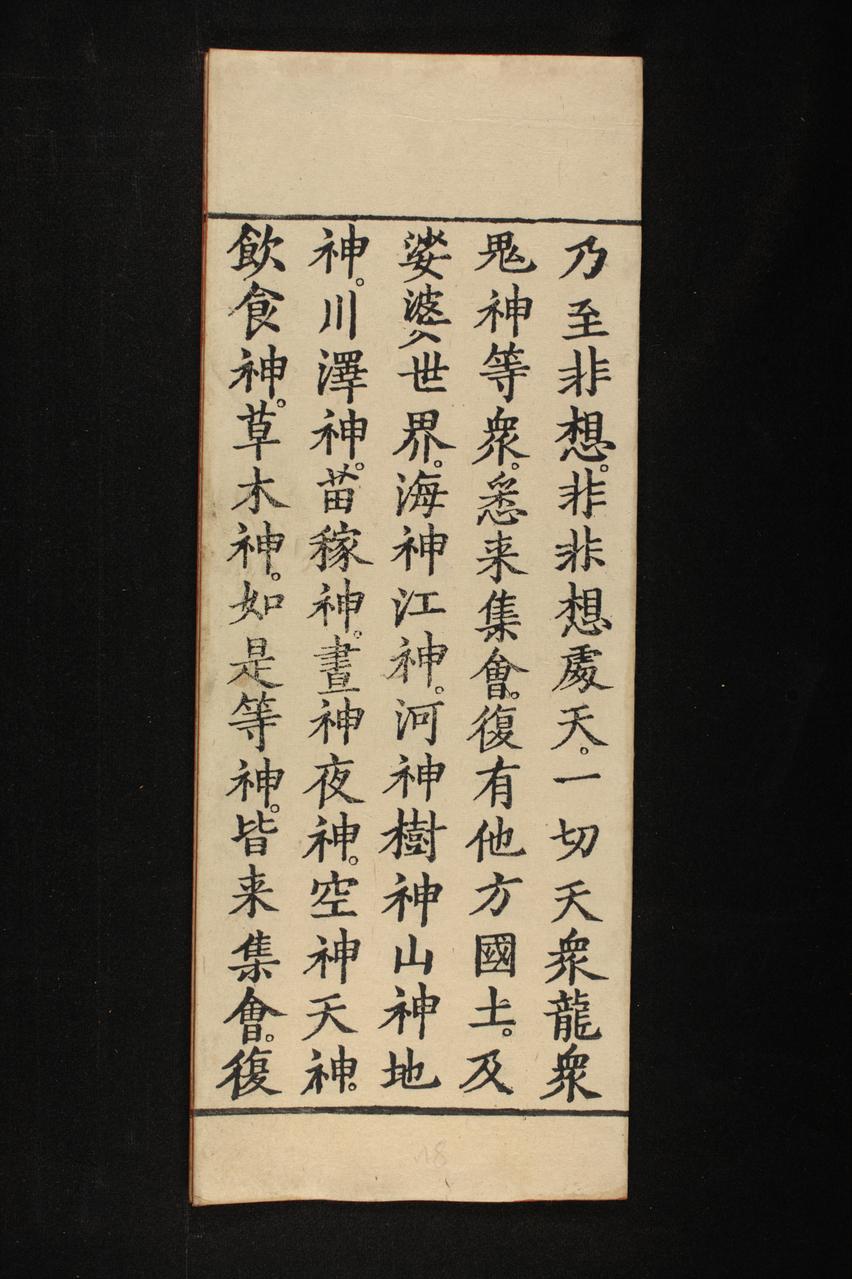 乃至非想。非非想處天。一切天衆龍衆
鬼神等衆。悉来集會。復有他方國土。及
娑婆世界。海神江神。河神樹神山神地
神。川澤神。苗稼神。晝神夜神。空神天神。
飲食神。草木神。如是等神。皆来集會。復
18